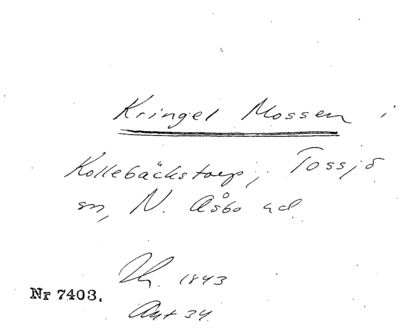 Kringel Mossen i
Kollebäckstorp, Tossjö
sn, N. Åsbo hd.
1843
Nr 7403.
Ant 34.